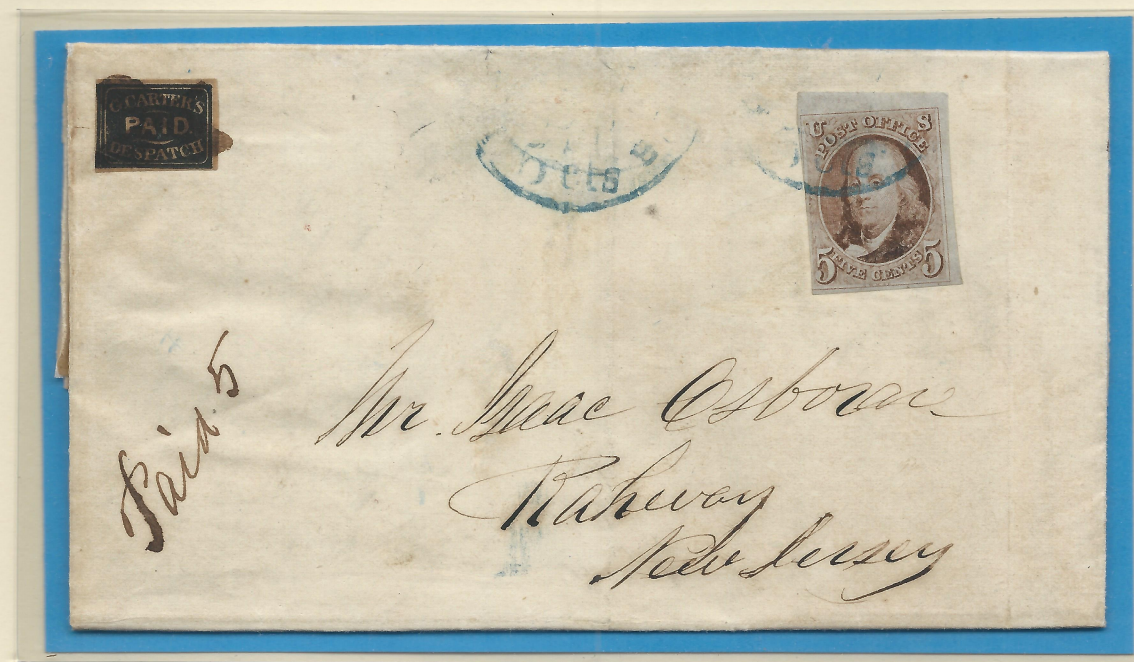 C. CARTER'S
PAID.
DESPATCH
5 cts
U S
POST OFFICE
5 FIVE CENTS 5
Paid 5
Mr. Isaac Osborne
Rahway
New Jersey